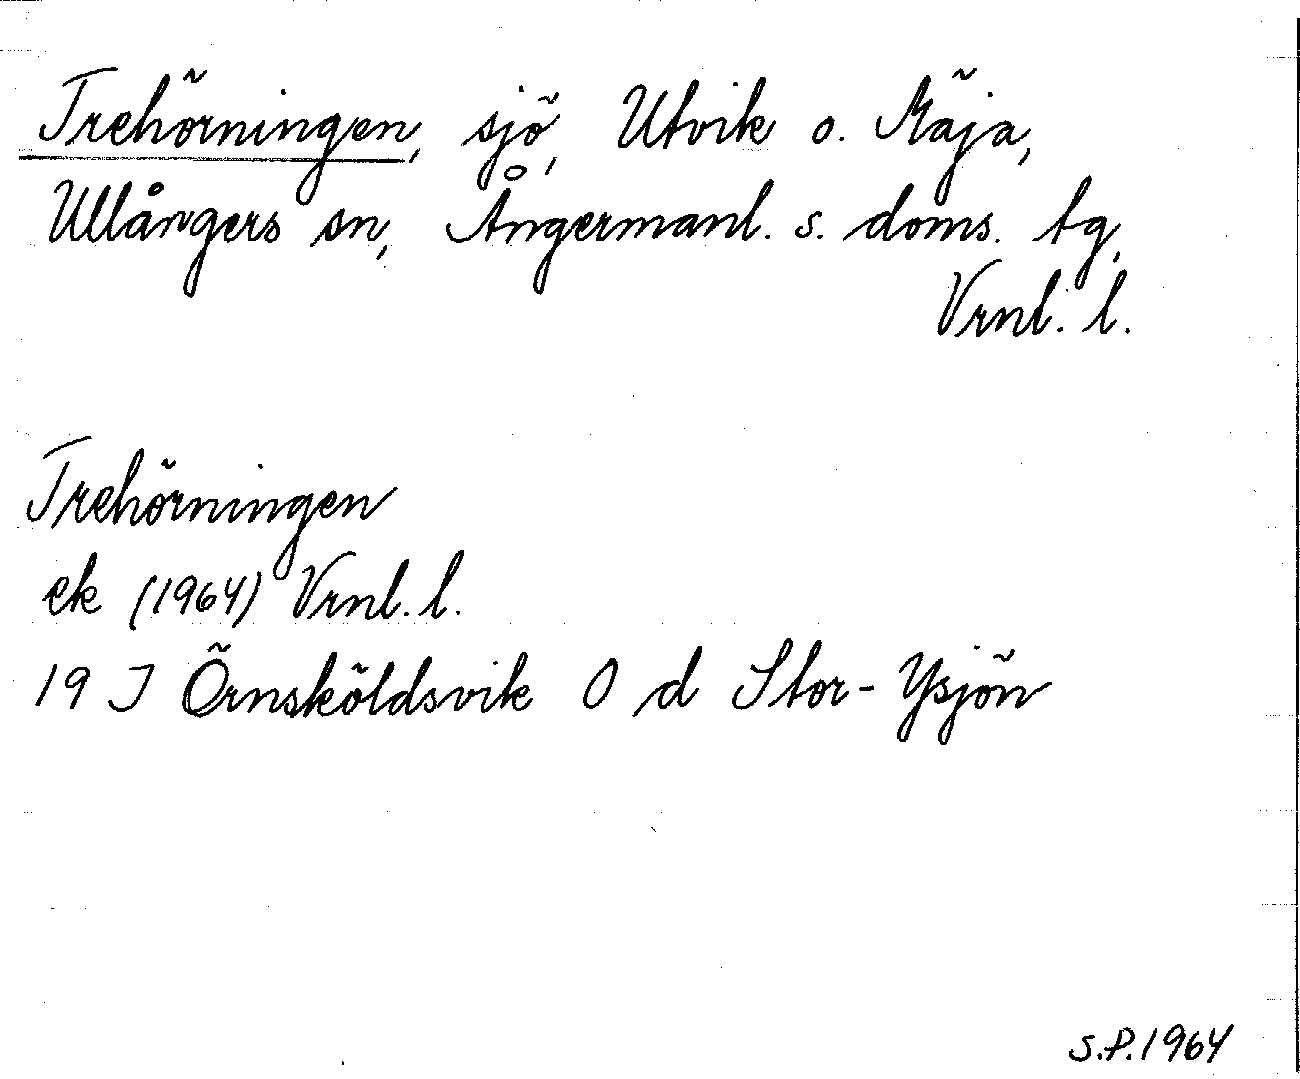 Trehörningen, sjö, Utvik o. Mäja,
Ullångers sn, Ångermanl. s. doms. tg,
Vrnl. l.
Trehörningen
ek (1964) Vrnl. l.
19 J Örnsköldsvik O d Stor-Ysjön
S.P. 1964